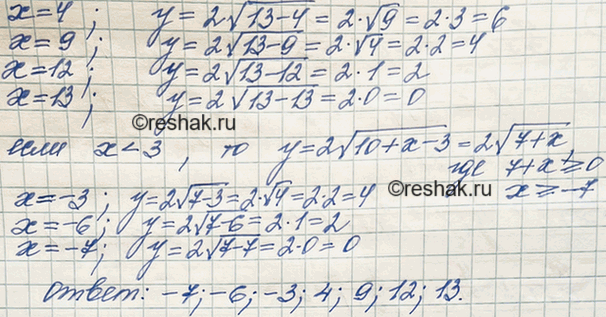 x=4; y=2√(13-4)=2·√9=2·3=6
x=9; y=2√(13-9)=2·√4=2·2=4
x=12; y=2√(13-12)=2·1=2
x=13; y=2√(13-13)=2·0=0
©reshak.ru
если x<3, то y=2√(10+x-3)=2√(7+x),
где 7+x≥0
©reshak.ru
x≥-7
x=-3; y=2√(7-3)=2·√4=2·2=4
x=-6; y=2√(7-6)=2·1=2
x=-7; y=2√(7-7)=2·0=0
ответ: -7; -6; -3; 4; 9; 12; 13.